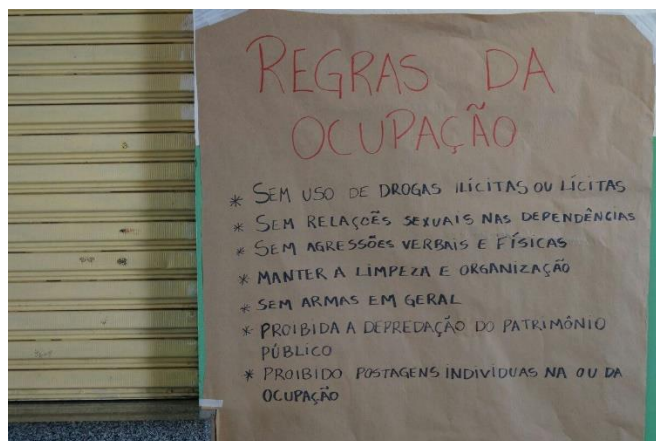 REGRAS DA
OCUPAÇÃO
* SEM USO DE DROGAS ILÍCITAS OU LÍCITAS
* SEM RELAÇÕES SEXUAIS NAS DEPENDÊNCIAS
* SEM AGRESSÕES VERBAIS E FÍSICAS
* MANTER A LIMPEZA E ORGANIZAÇÃO
* SEM ARMAS EM GERAL
* PROIBIDA A DEPREDAÇÃO DO PATRIMÔNIO
PÚBLICO
* PROIBIDO POSTAGENS INDIVÍDUAS NA OU DA
OCUPAÇÃO